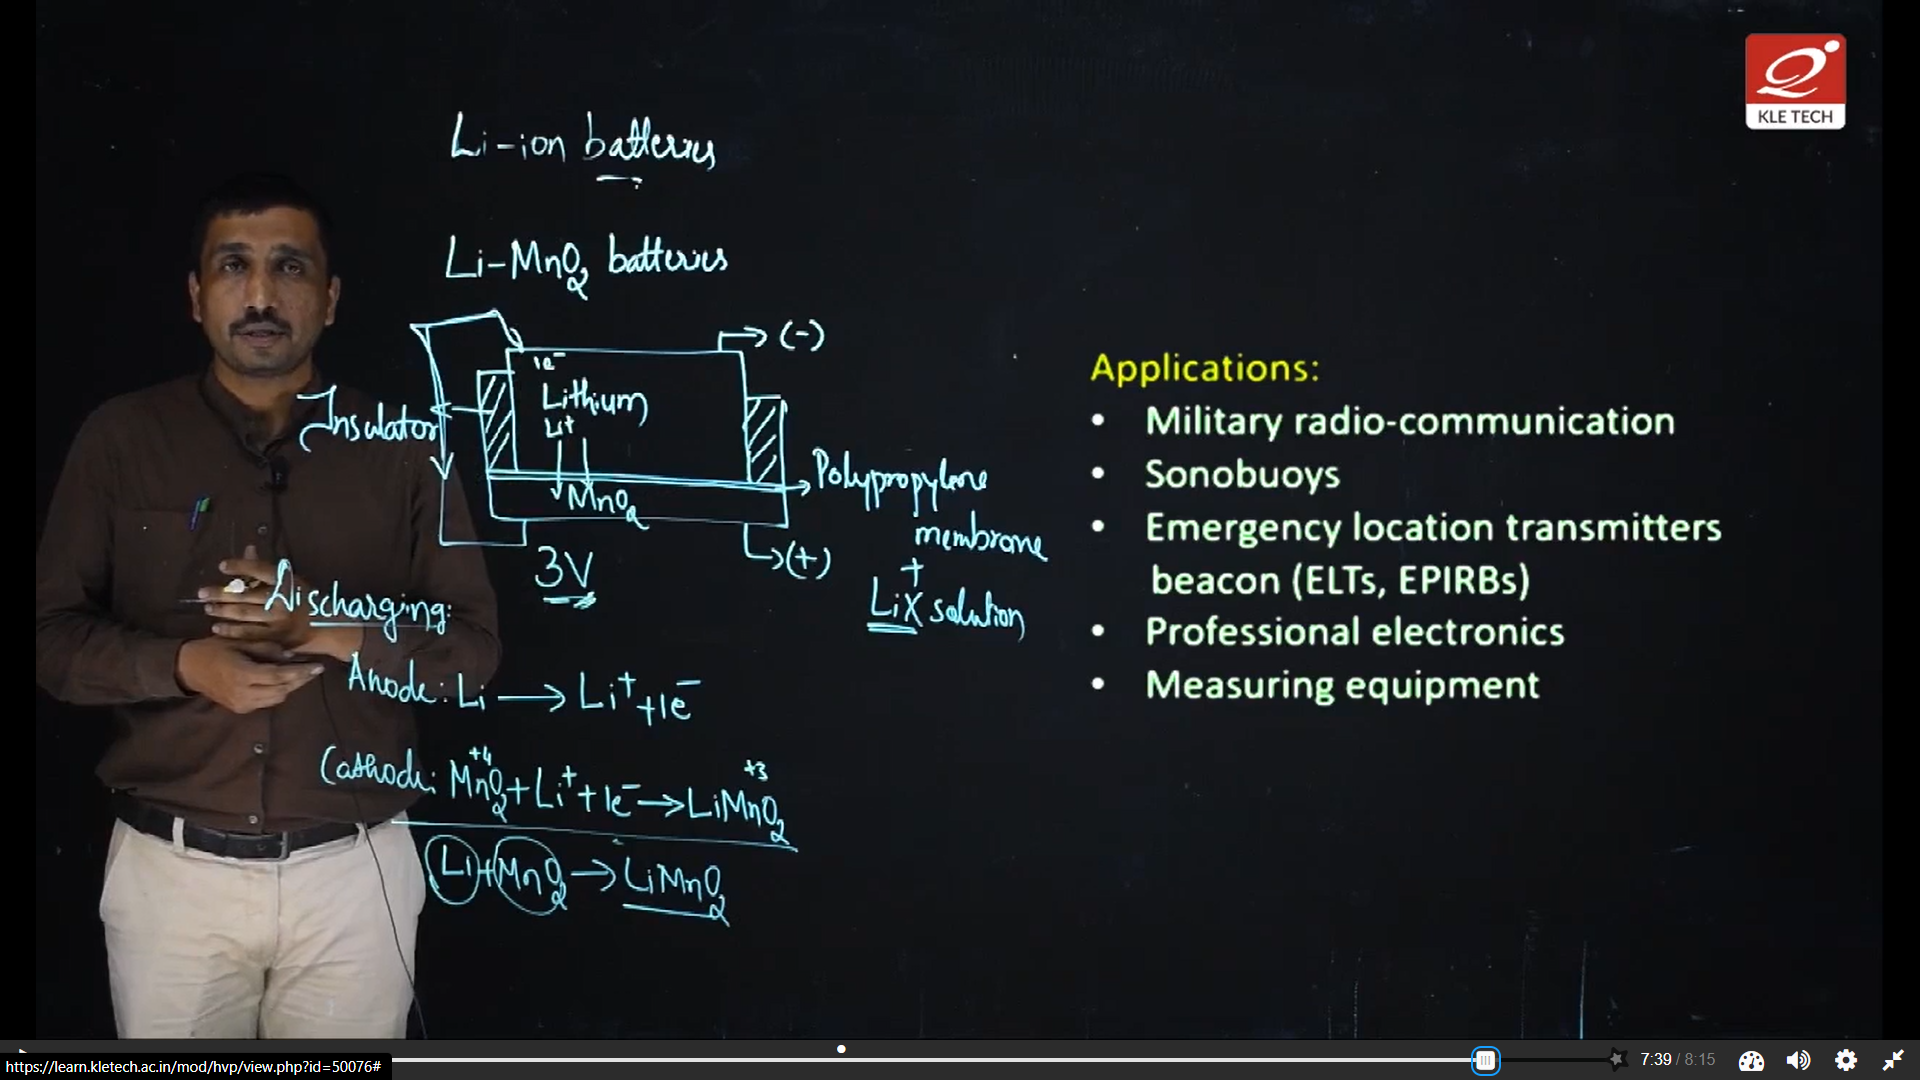 KLE TECH
Li-ion batteries
Li-MnO2 batteries
(-)
1e-
Lithium
Li+
Insulator
MnO2
Polypropylene
membrane
+
LiX solution
(+)
3V
Discharging:
Anode: Li → Li+ + 1e-
+4 +3
Cathode: MnO2 + Li+ + 1e- → LiMnO2
Li + MnO2 → LiMnO2
Applications:
• Military radio-communication
• Sonobuoys
• Emergency location transmitters
beacon (ELTs, EPIRBs)
• Professional electronics
• Measuring equipment
https://learn.kletech.ac.in/mod/hvp/view.php?id=50076#
7:39 / 8:15